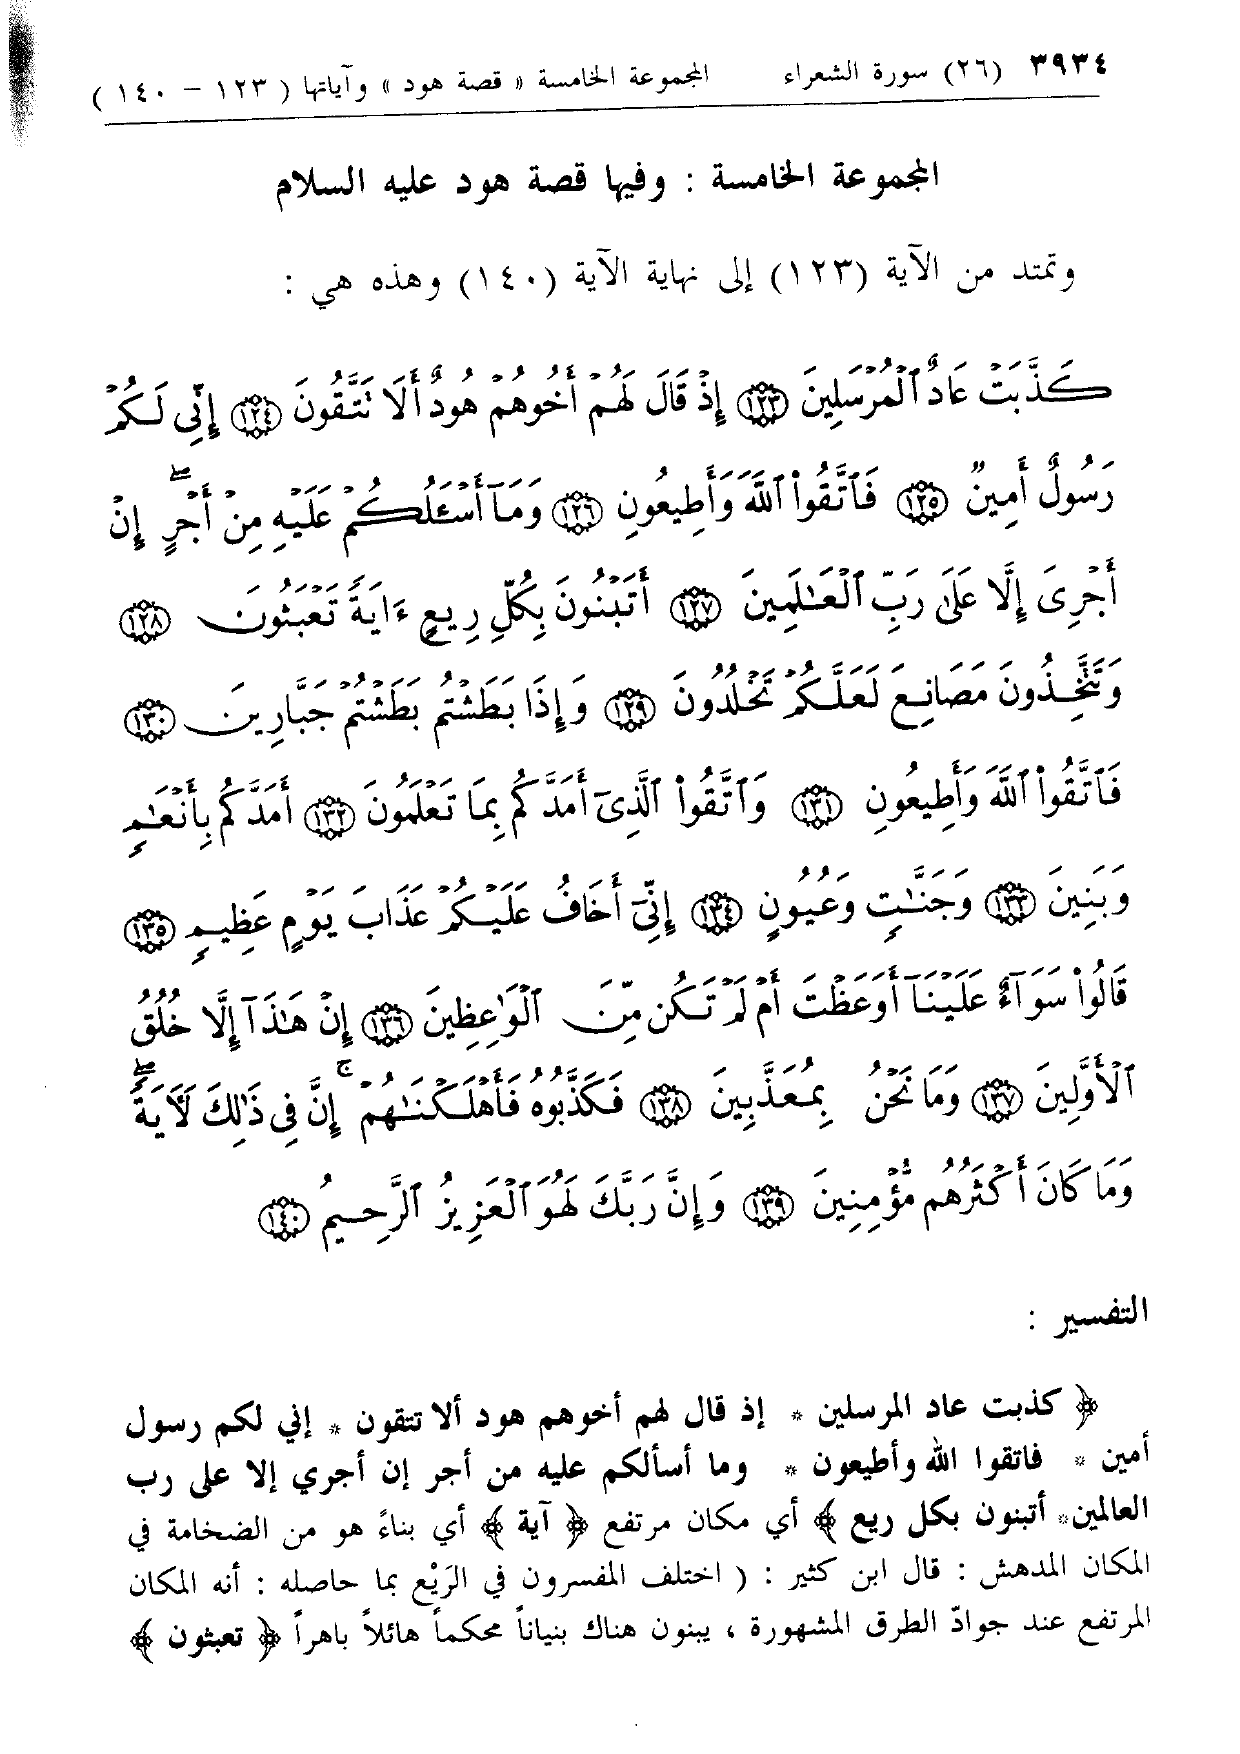 ٣٩٣٤ (٢٦) سورة الشعراء المجموعة الخامسة « قصة هود » وآياتها ( ١٢٣ – ١٤٠ )
المجموعة الخامسة : وفيها قصة هود عليه السلام
وتمتد من الآية (١٢٣) إلى نهاية الآية (١٤٠) وهذه هي :
كَذَّبَتْ عَادٌ ٱلْمُرْسَلِينَ ١٢٣ إِذْ قَالَ لَهُمْ أَخُوهُمْ هُودٌ أَلَا تَتَّقُونَ ١٢٤ إِنِّي لَكُمْ
رَسُولٌ أَمِينٌ ١٢٥ فَٱتَّقُوا۟ ٱللَّهَ وَأَطِيعُونِ ١٢٦ وَمَآ أَسْـَٔلُكُمْ عَلَيْهِ مِنْ أَجْرٍ ۖ إِنْ
أَجْرِىَ إِلَّا عَلَىٰ رَبِّ ٱلْعَـٰلَمِينَ ١٢٧ أَتَبْنُونَ بِكُلِّ رِيعٍ ءَايَةً تَعْبَثُونَ ١٢٨
وَتَتَّخِذُونَ مَصَانِعَ لَعَلَّكُمْ تَخْلُدُونَ ١٢٩ وَإِذَا بَطَشْتُم بَطَشْتُمْ جَبَّارِينَ ١٣٠
فَٱتَّقُوا۟ ٱللَّهَ وَأَطِيعُونِ ١٣١ وَٱتَّقُوا۟ ٱلَّذِىٓ أَمَدَّكُم بِمَا تَعْلَمُونَ ١٣٢ أَمَدَّكُم بِأَنْعَـٰمٍ
وَبَنِينَ ١٣٣ وَجَنَّـٰتٍ وَعُيُونٍ ١٣٤ إِنِّىٓ أَخَافُ عَلَيْكُمْ عَذَابَ يَوْمٍ عَظِيمٍ ١٣٥
قَالُوا۟ سَوَآءٌ عَلَيْنَآ أَوَعَظْتَ أَمْ لَمْ تَكُن مِّنَ ٱلْوَٰعِظِينَ ١٣٦ إِنْ هَـٰذَآ إِلَّا خُلُقُ
ٱلْأَوَّلِينَ ١٣٧ وَمَا نَحْنُ بِمُعَذَّبِينَ ١٣٨ فَكَذَّبُوهُ فَأَهْلَكْنَـٰهُمْ ۚ إِنَّ فِى ذَٰلِكَ لَـَٔايَةً ۖ
وَمَا كَانَ أَكْثَرُهُم مُّؤْمِنِينَ ١٣٩ وَإِنَّ رَبَّكَ لَهُوَ ٱلْعَزِيزُ ٱلرَّحِيمُ ١٤٠
التفسير :
﴿ كذبت عاد المرسلين * إذ قال لهم أخوهم هود ألا تتقون * إني لكم رسول
أمين * فاتقوا الله وأطيعون * وما أسألكم عليه من أجر إن أجري إلا على رب
العالمين * أتبنون بكل ريع ﴾ أي مكان مرتفع ﴿ آية ﴾ أي بناءً هو من الضخامة في
المكان المدهش : قال ابن كثير : ( اختلف المفسرون في الرَيْع بما حاصله : أنه المكان
المرتفع عند جوادّ الطرق المشهورة ، يبنون هناك بنياناً محكماً هائلاً باهراً ﴿ تعبثون ﴾